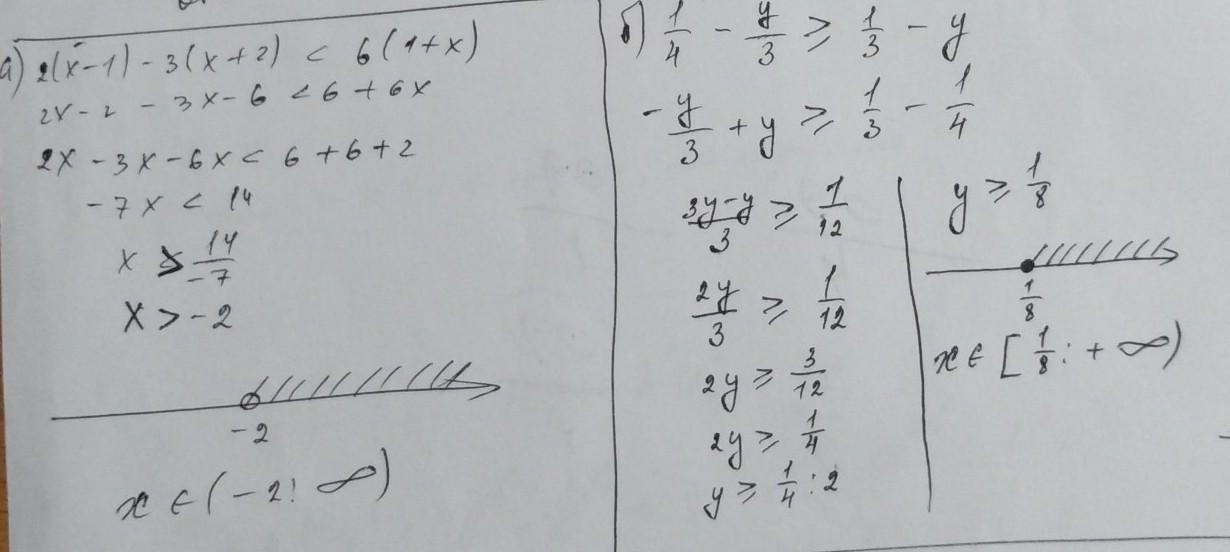 а) 2(x-1) - 3(x+2) < 6(1+x)
2x - 2 - 3x - 6 < 6 + 6x
2x - 3x - 6x < 6 + 6 + 2
-7x < 14
x > 14/-7
x > -2
-2
x ∈ (-2; ∞)
б) 1/4 - y/3 ≥ 1/3 - y
-y/3 + y ≥ 1/3 - 1/4
3y-y/3 ≥ 1/12
2y/3 ≥ 1/12
2y ≥ 3/12
2y ≥ 1/4
y ≥ 1/4 : 2
y ≥ 1/8
1/8
x ∈ [1/8; +∞)